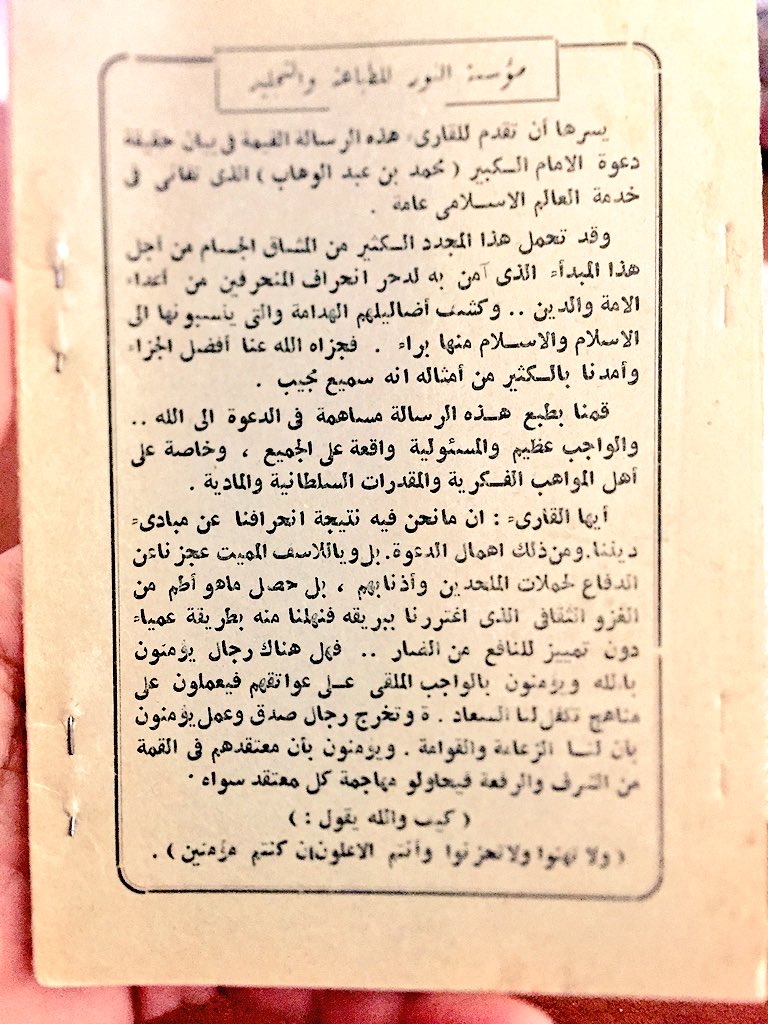 مؤسسة النور للطباعة والتجليد
يسرها أن تقدم للقارىء هذه الرسالة القيمة فى بيان حقيقة
دعوة الامام الكبير ( محمد بن عبد الوهاب ) الذى تفانى فى
خدمة العالم الاسلامى عامة .
وقد تحمل هذا المجدد الكثير من المشاق الجسام من أجل
هذا المبدأء الذى آمن به لدحر انحراف المنحرفين من أعداء
الامة والدين .. وكشف أضاليلهم الهدامة والتى ينسبونها الى
الاسلام والاسلام منها براء . فجزاه الله عنا أفضل الجزاء
وأمدنا بالكثير من أمثاله انه سميع مجيب .
قمنا بطبع هذه الرسالة مساهمة فى الدعوة الى الله ..
والواجب عظيم والمسئولية واقعة على الجميع ، وخاصة على
أهل المواهب الفكرية والمقدرات السلطانية والمادية .
أيها القارىء : ان مانحن فيه نتيجة انحرافنا عن مبادىء
ديننا.ومن ذلك اهمال الدعوة. بل وياللاسف المميت عجزناعن
الدفاع لحملات الملحدين وأذنابهم ، بل حصل ماهو أطم من
الغزو الثقافى الذى اغتررنا ببريقه فنهلنا منه بطريقة عمياء
دون تمييز للنافع من الضار .. فهل هناك رجال يؤمنون
بالله ويؤمنون بالواجب الملقى على عواتقهم فيعملون على
مناهج تكفل لنا السعاد . ة وتخرج رجال صدق وعمل يؤمنون
بأن لنا الزعامة والقوامة . ويؤمنون بأن معتقدهم فى القمة
من الشرف والرفعة فيحاولو مهاجمة كل معتقد سواه .
( كيف والله يقول : )
( ولا تهنوا ولاتحزنوا وأنتم الاعلون ان كنتم مؤمنين ) .